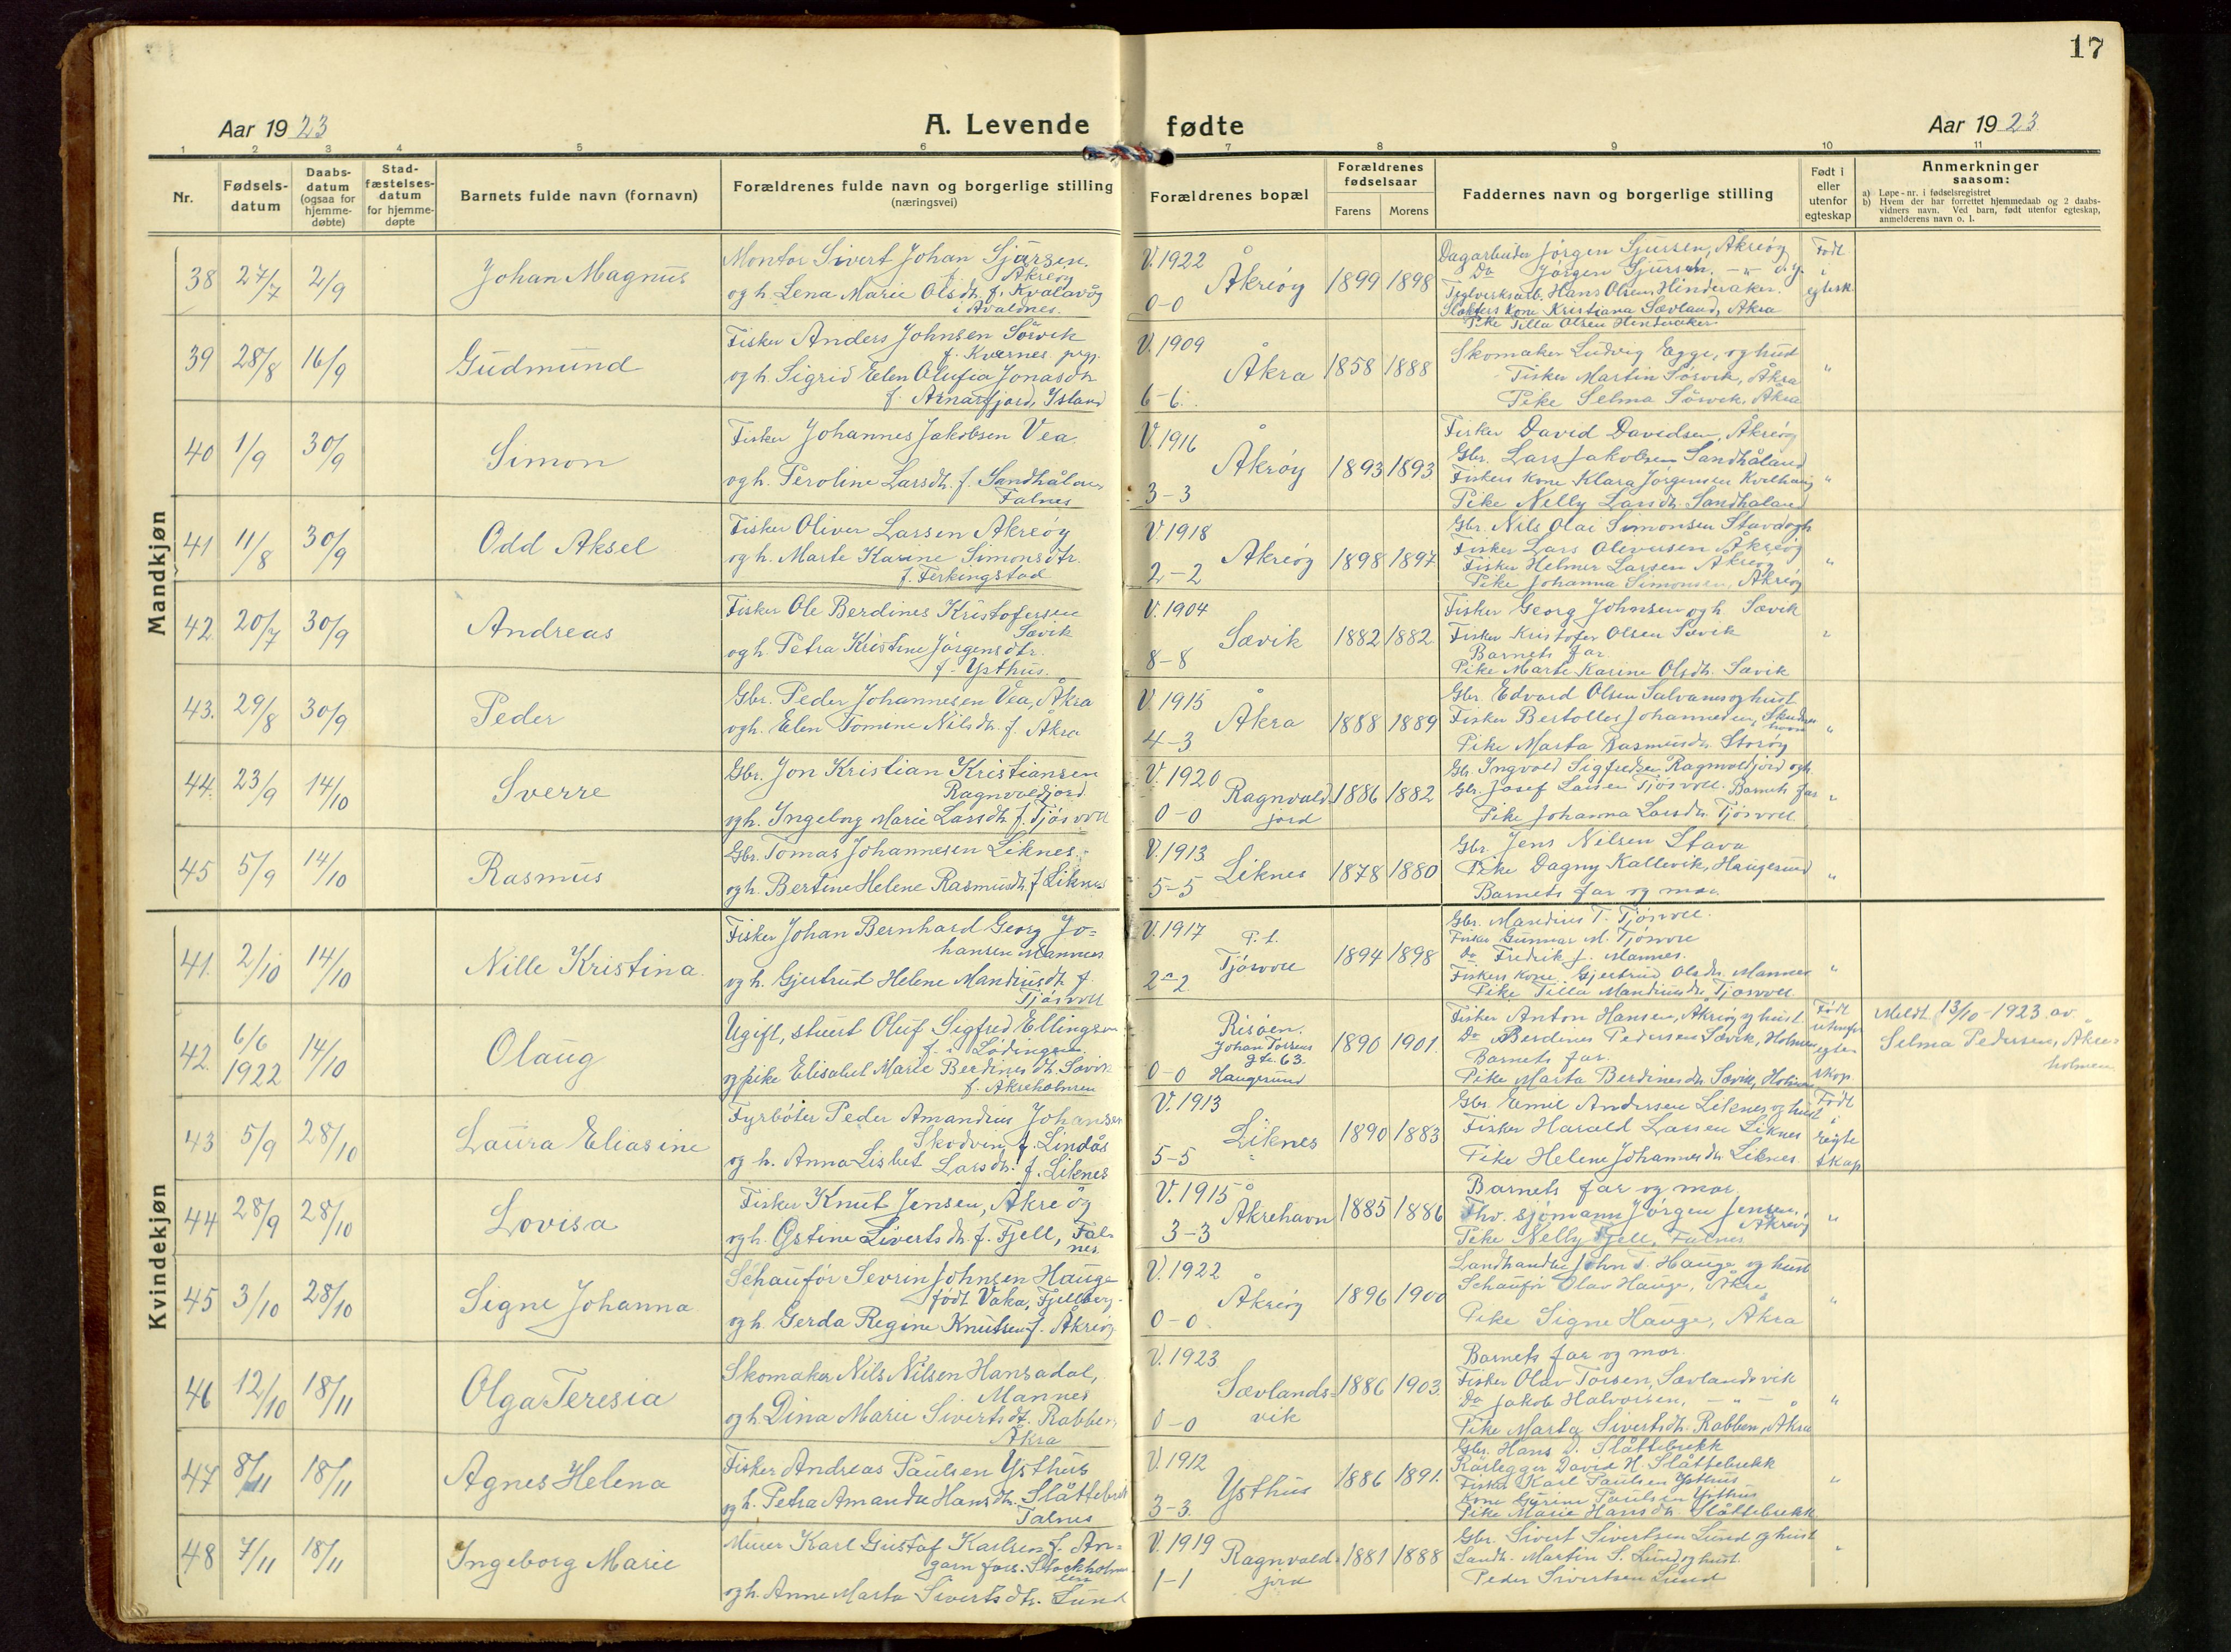 17
Aar 1923
A. Levende fødte
Aar 1923
1 2 3 4 5 6 7 8 9 10 11
Nr.
Fødsels-
datum
Daabs-
datum
(ogsaa for
hjemme-
døbte)
Stad-
fæstelses-
datum
for hjemme-
døpte
Barnets fulde navn (fornavn)
Forældrenes fulde navn og borgerlige stilling
(næringsvei)
Forældrenes bopæl
Forældrenes
fødselsaar
Farens
Morens
Faddernes navn og borgerlige stilling
Født i
eller
utenfor
egteskap
Anmerkninger
saasom:
a) Løpe-nr. i fødselsregistret
b) Hvem der har forrettet hjemmedaab og 2 daabs-
vidners navn. Ved barn, født utenfor egteskap,
anmelderens navn o. l.
Mandkjøn
38 27/7 2/9 Johan Magnus
Montør Sivert Johan Sjursen.
f. Åkreøy
og h. Lena Marie Olsdtr. f. Kvalavåg
i Avaldnes.
V. 1922
Åkreøy 1899 1898
0-0
Dagarbeider Jørgen Sjursen, Åkreøy
Do Jørgen Sjursen. - " - d.y.
Teglverksarb. Hans Olsen Hinderaker.
Slakters kone Kristiana Sævland, Åkra
Pike Tilla Olsen Hinderaker
Født
i
egtesk.
39 28/8 16/9 Gudmund
Fisker Anders Johnsen Sörvik
f. Kvernes prgj.
og h. Sigrid Elen Olufia Jonasdtr
f. Arnarfjord, Island
V. 1909
Åkra 1858 1888
6-6.
Skomaker Ludvig Egge, og hust
Fisker Martin Sörvik, Åkra
Pike Selma Sörvik, Åkra
"
40 1/9 30/9 Simon
Fisker Johannes Jakobsen Vea.
og h. Peroline Larsdtr. f. Sandhåland
Falnes
V. 1916
Åkrøy 1893 1893
3-3
Fisker David Davidsen, Åkreøy
Gbr. Lars Jakobsen Sandhåland
Fiskers kone Klara Jørgensen Kvilhaug
Pike Nelly Larsdtr. Sandhaland
"
41 11/8 30/9 Odd Aksel
Fisker Oliver Larsen Åkreøy
og h. Marte Karine Simonsdtr.
f. Ferkingstad
V. 1918
Åkreøy 1898 1897
2-2
Gbr. Nils Olai Simonsen Stava og h
Fisker Lars Oliversen Åkreøy
Fisker Helmer Larsen Åkreøy
Pike Johanna Simonsen, Åkreøy
"
42 20/7 30/9 Andreas
Fisker Ole Berdines Kristofersen
Sævik
og h. Petra Kristine Jørgensdtr.
f. Ysthus.
V. 1904
Sævik 1882 1882
8-8
Fisker Georg Johnsen og h. Sævik
Fisker Kristofer Olsen Sævik
Barnets far.
Pike Marte Karine Olsdtr. Sævik
"
43. 29/8 30/9 Peder
Gbr. Peder Johannesen Vea, Åkra
og h. Elen Tomine Nilsdtr. f. Åkra
V. 1915
Åkra 1888 1889
4-3
Gbr. Edvard Olsen Salvanes og hust
Fisker Bertolles Johannesen, Skudes
havn
Pike Marta Rasmusdtr. Storøy
"
44. 23/9 14/10 Sverre
Gbr. Jon Kristian Kristiansen
Ragnvaldjord
og h. Ingeborg Marie Larsdtr. f. Tjøsvoll
V. 1920
Ragnvald- 1886 1882
0-0 jord
Gbr. Ingvald Sigfredsen Ragnvaldjord og h.
Gbr. Josef Larsen Tjøsvoll. Barnets far
Pike Johanna Larsdtr. Tjøsvoll.
"
45 5/9 14/10 Rasmus
Gbr. Tomas Johannesen Liknes.
og h. Bertine Helene Rasmusdtr. f. Liknes
V. 1913
Liknes 1878 1880
5-5
Gbr. Jens Nilsen Stava
Pike Dagny Kallevik, Haugesund
Barnets far og mor.
"
Kvindekjøn
41. 2/10 14/10 Nille Kristina.
Fisker Johan Bernhard Georg Jo=
hansen Mannes
og h. Gjertrud Helene Mandiusdtr. f.
Tjøsvoll
V. 1917
P. t.
Tjøsvoll 1894 1898
2-2
Gbr. Mandius T. Tjøsvoll.
Fisker Gunnar M. Tjøsvoll
Do Fredrik J. Mannes.
Fiskers kone Gjertrud Olsdtr. Mannes
Pike Tilla Mandiusdtr. Tjøsvoll.
"
42. 6/6 1922 14/10 Olaug
Ugift, stuert Oluf Sigfred Ellingsen
f. i Lødingen
og pike Elisabet Marie Berdinesdtr. Sævik
f. Åkreholmen
Risøen.
Johan Torsens
gt. 63.
0-0 Haugesund
1890 1901.
Fisker Anton Hansen, Åkreøy og hust.
Do Berdines Pedersen Sævik, Holmen
Barnets far.
Pike Marta Berdinesdtr. Sævik, Holmen
Født
utenfor
egte-
skap
Meldt 13/10 - 1923 av
Selma Pedersen, Åkre-
holmen
43 5/9 28/10 Laura Eliasine
Fyrbøter Peder Amandius Johansen
Skodvin, f. Lindås
og h. Anna Lisbet Larsdtr. f. Liknes
V. 1913
Liknes 1890 1883
5-5
Gbr. Emil Andersen Liknes og hust
Fisker Harald Larsen Liknes
Pike Helene Johannesdtr. Liknes.
Født
i
egte
skap
44 28/9 28/10 Lovisa
Fisker Knut Jensen, Åkreøy
og h. Østine Sivertsdtr. f. Fjell, Fal-
nes.
V. 1915
Åkrehavn 1885 1886
3-3
Barnets far og mor.
Fhv. sjømann Jørgen Jensen,
Åkreøy
Pike Nelly Fjell, Falnes
"
45 3/10 28/10 Signe Johanna
Schaufør Sevrin Johnsen Hauge
født Vaka, Fjellberg.
og h. Gerda Regine Knutsen f. Åkreøy
V. 1922
Åkreøy 1896 1900
0-0
Landhandler John T. Hauge og hust
Schaufør Olav Hauge, Åkre
Pike Signe Hauge, Åkra
"
46 12/10 18/11 Olga Teresia
Skomaker Nils Nilsen Hansadal,
Mannes
og h. Dina Marie Sivertsdt. Rabben,
Åkra
V. 1923
Sævlands= 1886 1903.
0-0 vik
Barnets far og mor.
Fisker Olav Torsen, Sævlandsvik
Do Jakob Halvorsen, - " -
Pike Marta Sivertsdtr. Rabben, Åkra
"
47 8/11 18/11 Agnes Helena
Fisker Andreas Paulsen Ysthus
og h. Petra Amanda Hansdtr. Slåttebrek
Falnes
V. 1912
Ysthus 1886 1891.
3-3.
Gbr. Hans D. Slåttebrekk
Rørlegger David H. Slåttebrekk
Fisker Karl Paulsen Ysthus
Kone Paulsen Ysthus
Pike Marie Hansdtr. Slåttebrekk
"
48 7/11 18/11 Ingeborg Marie
Murer Karl Gustaf Karlsen f. An=
garn fors. Stockholms
len
og h. Anne Marta Sivertsdtr. Lund
V. 1919
Ragnvald- 1881 1888
1-1 jord
Gbr. Sivert Sivertsen Lund og hust
Landh. Martin S. Lund og hust.
Peder Sivertsen Lund
"